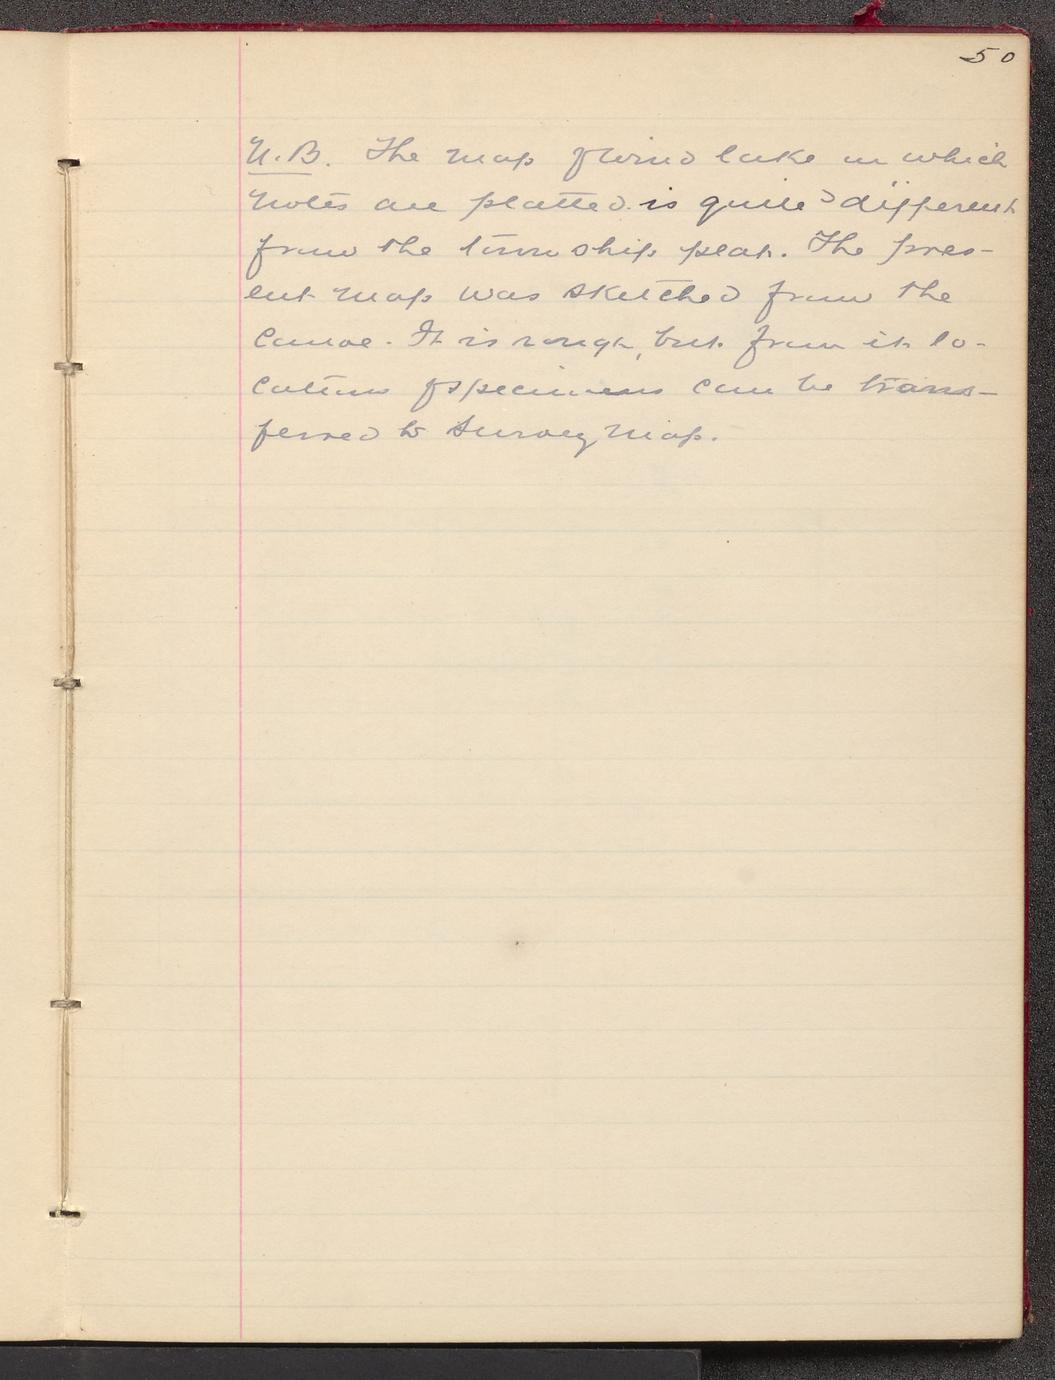 50
N.B. The map of Wind lake on which
notes are platted is quite different
from the township plat. The pres-
ent map was sketched from the
canoe. It is rough, but from it lo-
cations of specimens can be trans-
ferred to Survey Map.